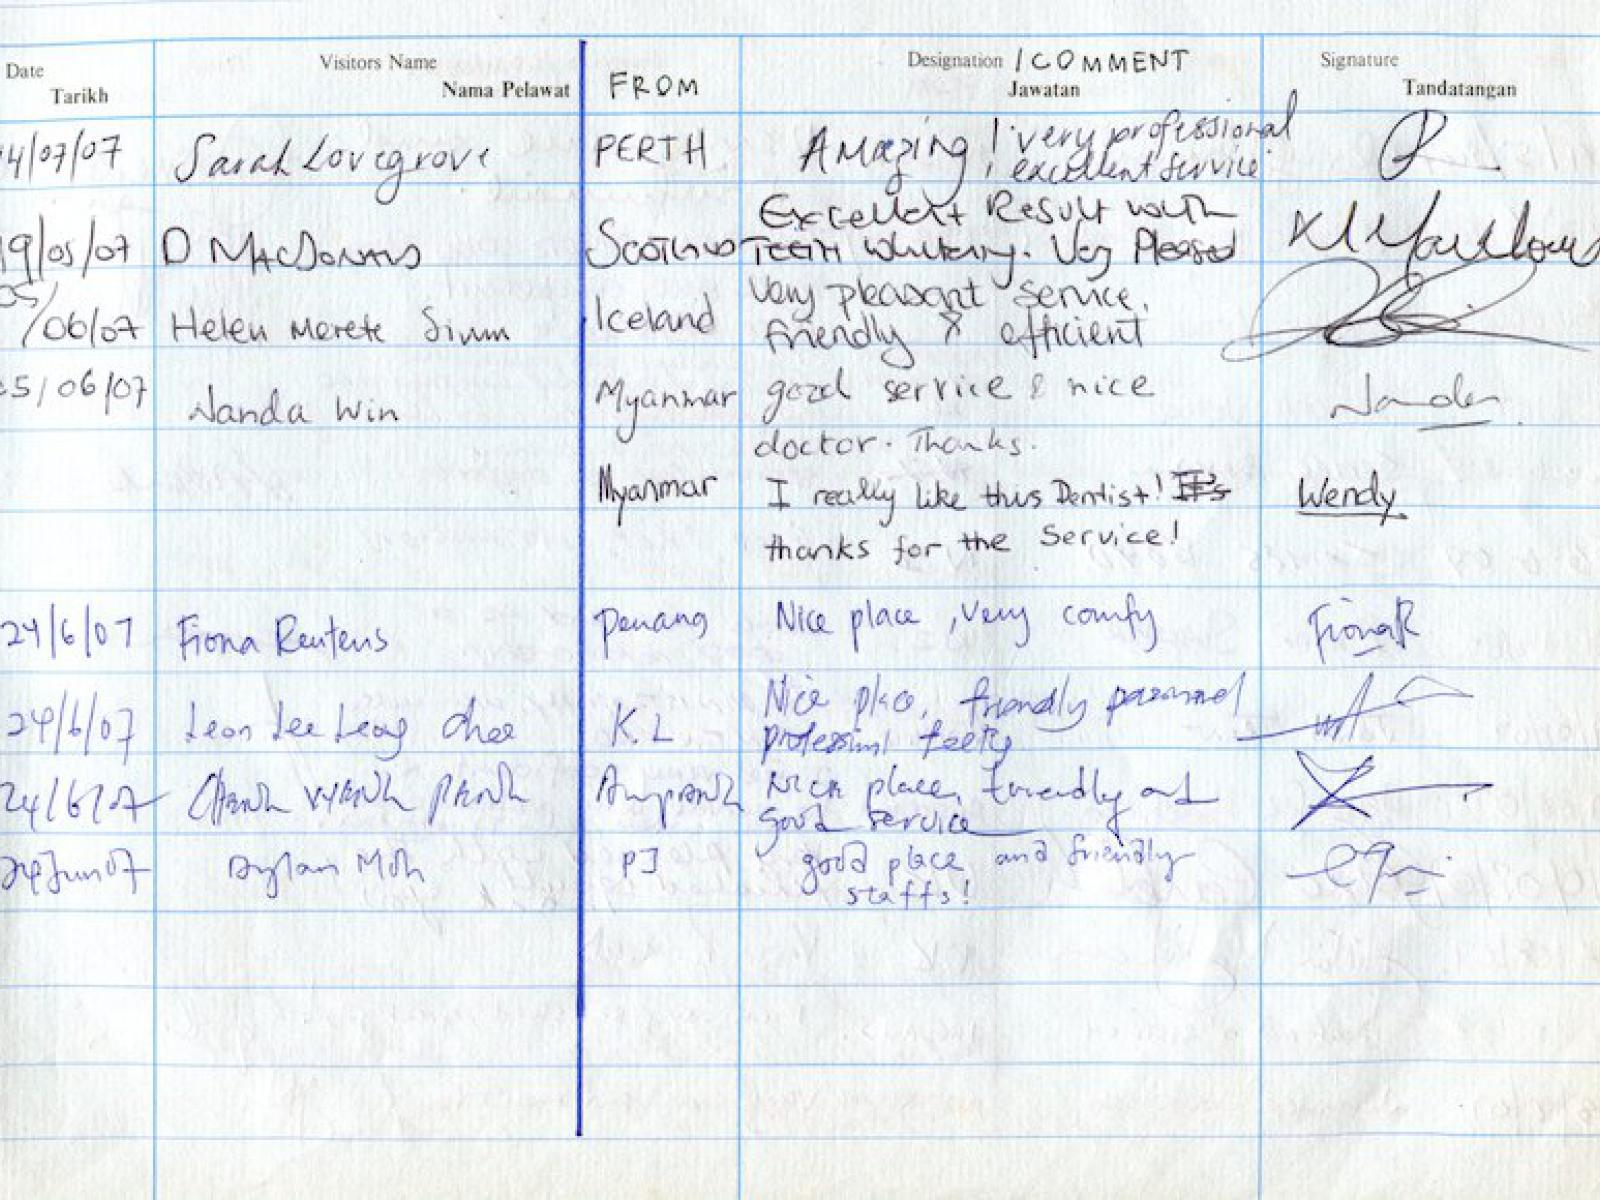 Date Visitors Name Designation / COMMENT Signature
Tarikh Nama Pelawat FROM Jawatan Tandatangan
4/07/07 Sarah Lovegrove PERTH Amazing ! very professional
excellent service
19/05/07 D MACDONALD SCOTLAND Excellent Result with
TEETH Whitening. Very Pleased
05/06/07 Helen Merete Simm Iceland Very pleasant service,
friendly & efficient
5/06/07 Nanda Win Myanmar good service & nice Nanda
doctor. Thanks.
Myanmar I really like this Dentist! It's Wendy
thanks for the Service!
24/6/07 Fiona Reutens Penang Nice place, very comfy FionaR
24/6/07 Leon Lee Leong Chee K.L Nice place, friendly personnel
24/6/07 Ampang Nice place, friendly and
good service
24 Jun 07 Dylan Moh PJ good place and friendly
staffs!